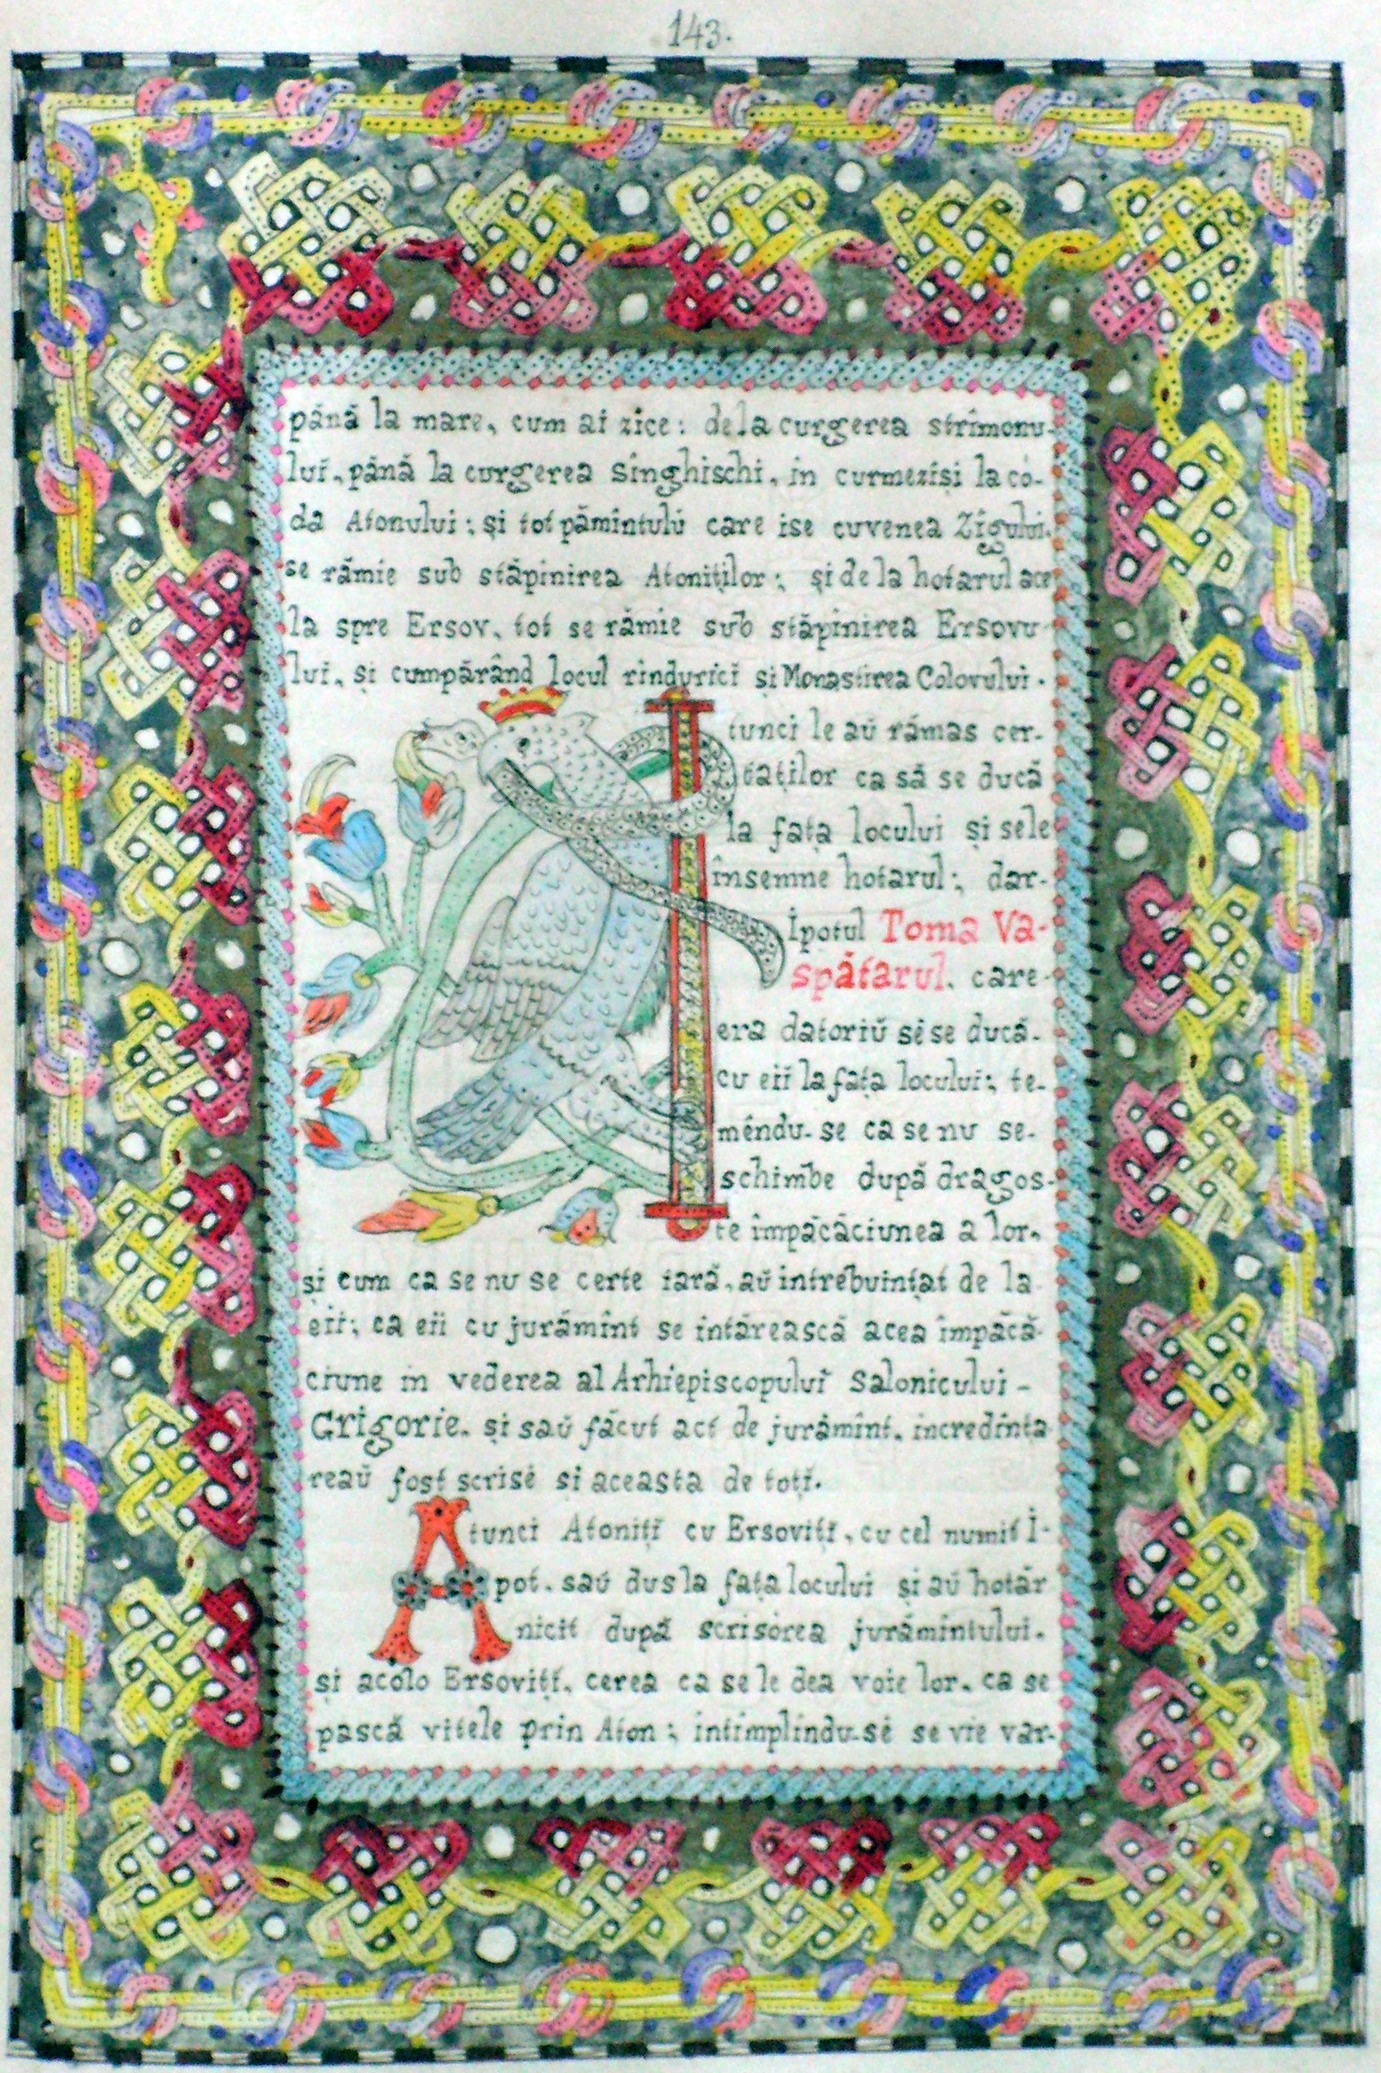 143.
până la mare, cum ai zice: dela curgerea strîmonu-
lui, până la curgerea sînghischi, in curmezișì la có-
da Atonului; și tot pămîntulŭ care ise cuvenea Zîgului,
se rămîe sub stăpînirea Atoniților; și de la hotarul ace
la spre Ersov, tot se rămîe sub stăpînirea Ersovu-
lui, și cumpărând locul rîndurici și Monastirea Colovului.
tunci le aŭ rămas cer-
taților ca să se ducă
la fața locului și sele
însemne hotarul; dar-
Ipotul Toma Va-
spătarul, care-
era datoriŭ sè se ducă-
cu eii la fața locului; te-
mêndu-se ca se nu se-
schîmbe după dragos-
te împăcăciunea a lor,
și cum ca se nu se certe iară, aŭ intrebuințat de la
eii; ca eii cu jurămînt se intărească acea împăcă-
ciune in vederea al Arhiepiscopului Salonicului-
Grigorie, și saŭ făcut act de jurămînt, incredința
reaŭ fost scrisè și aceasta de toți.
Atunci Atoniți cu Ersoviți, cu cel numit I-
pot, saŭ dus la fața locului și aŭ hotăr
nicit după scrisórea jurămîntului,
și acolo Ersoviți, cerea ca se le dea voie lor, ca se
pască vitele prin Aton; intîmplîndu-sè se vie var-